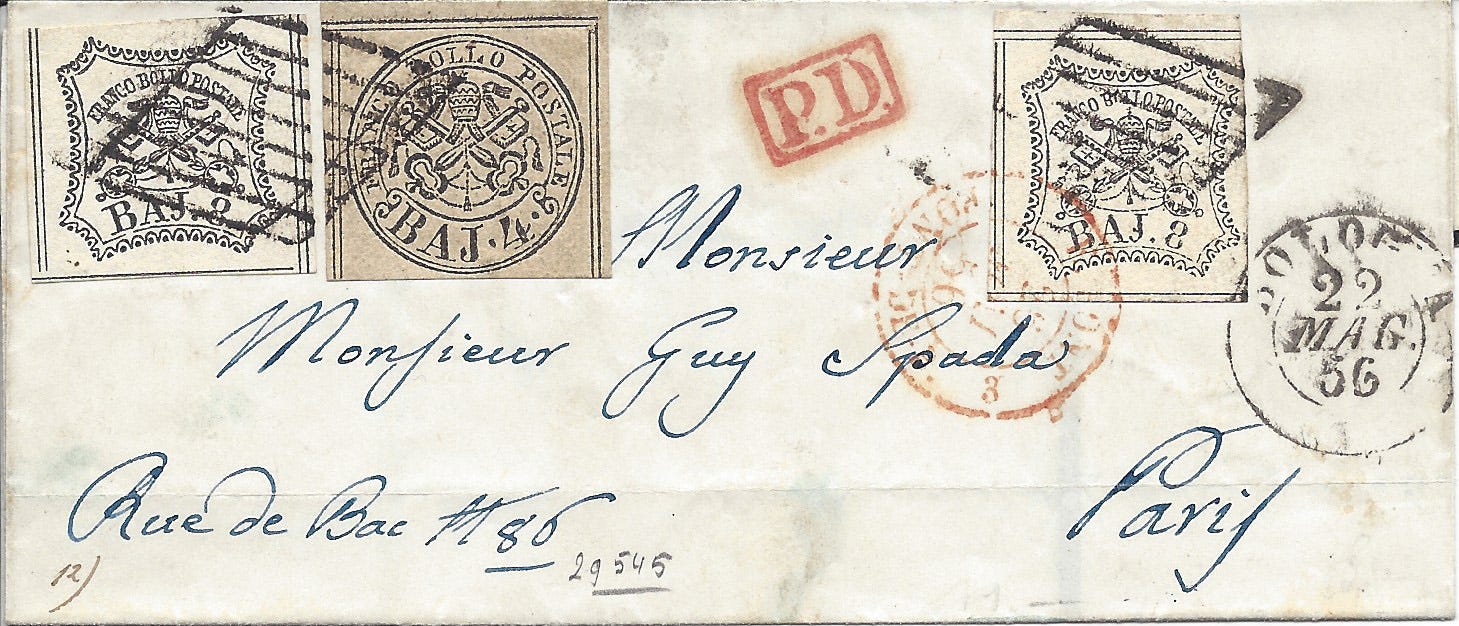 FRANCO BOLLO POSTALE
BAJ. 8
FRANCO BOLLO POSTALE
BAJ. 4.
P.D.
FRANCO BOLLO POSTALE
BAJ. 8
BOLOGNA
22
MAG.
56
Monsieur
Monsieur Guy Spada
3
Rue de Bac # 86
Paris
12)
29545